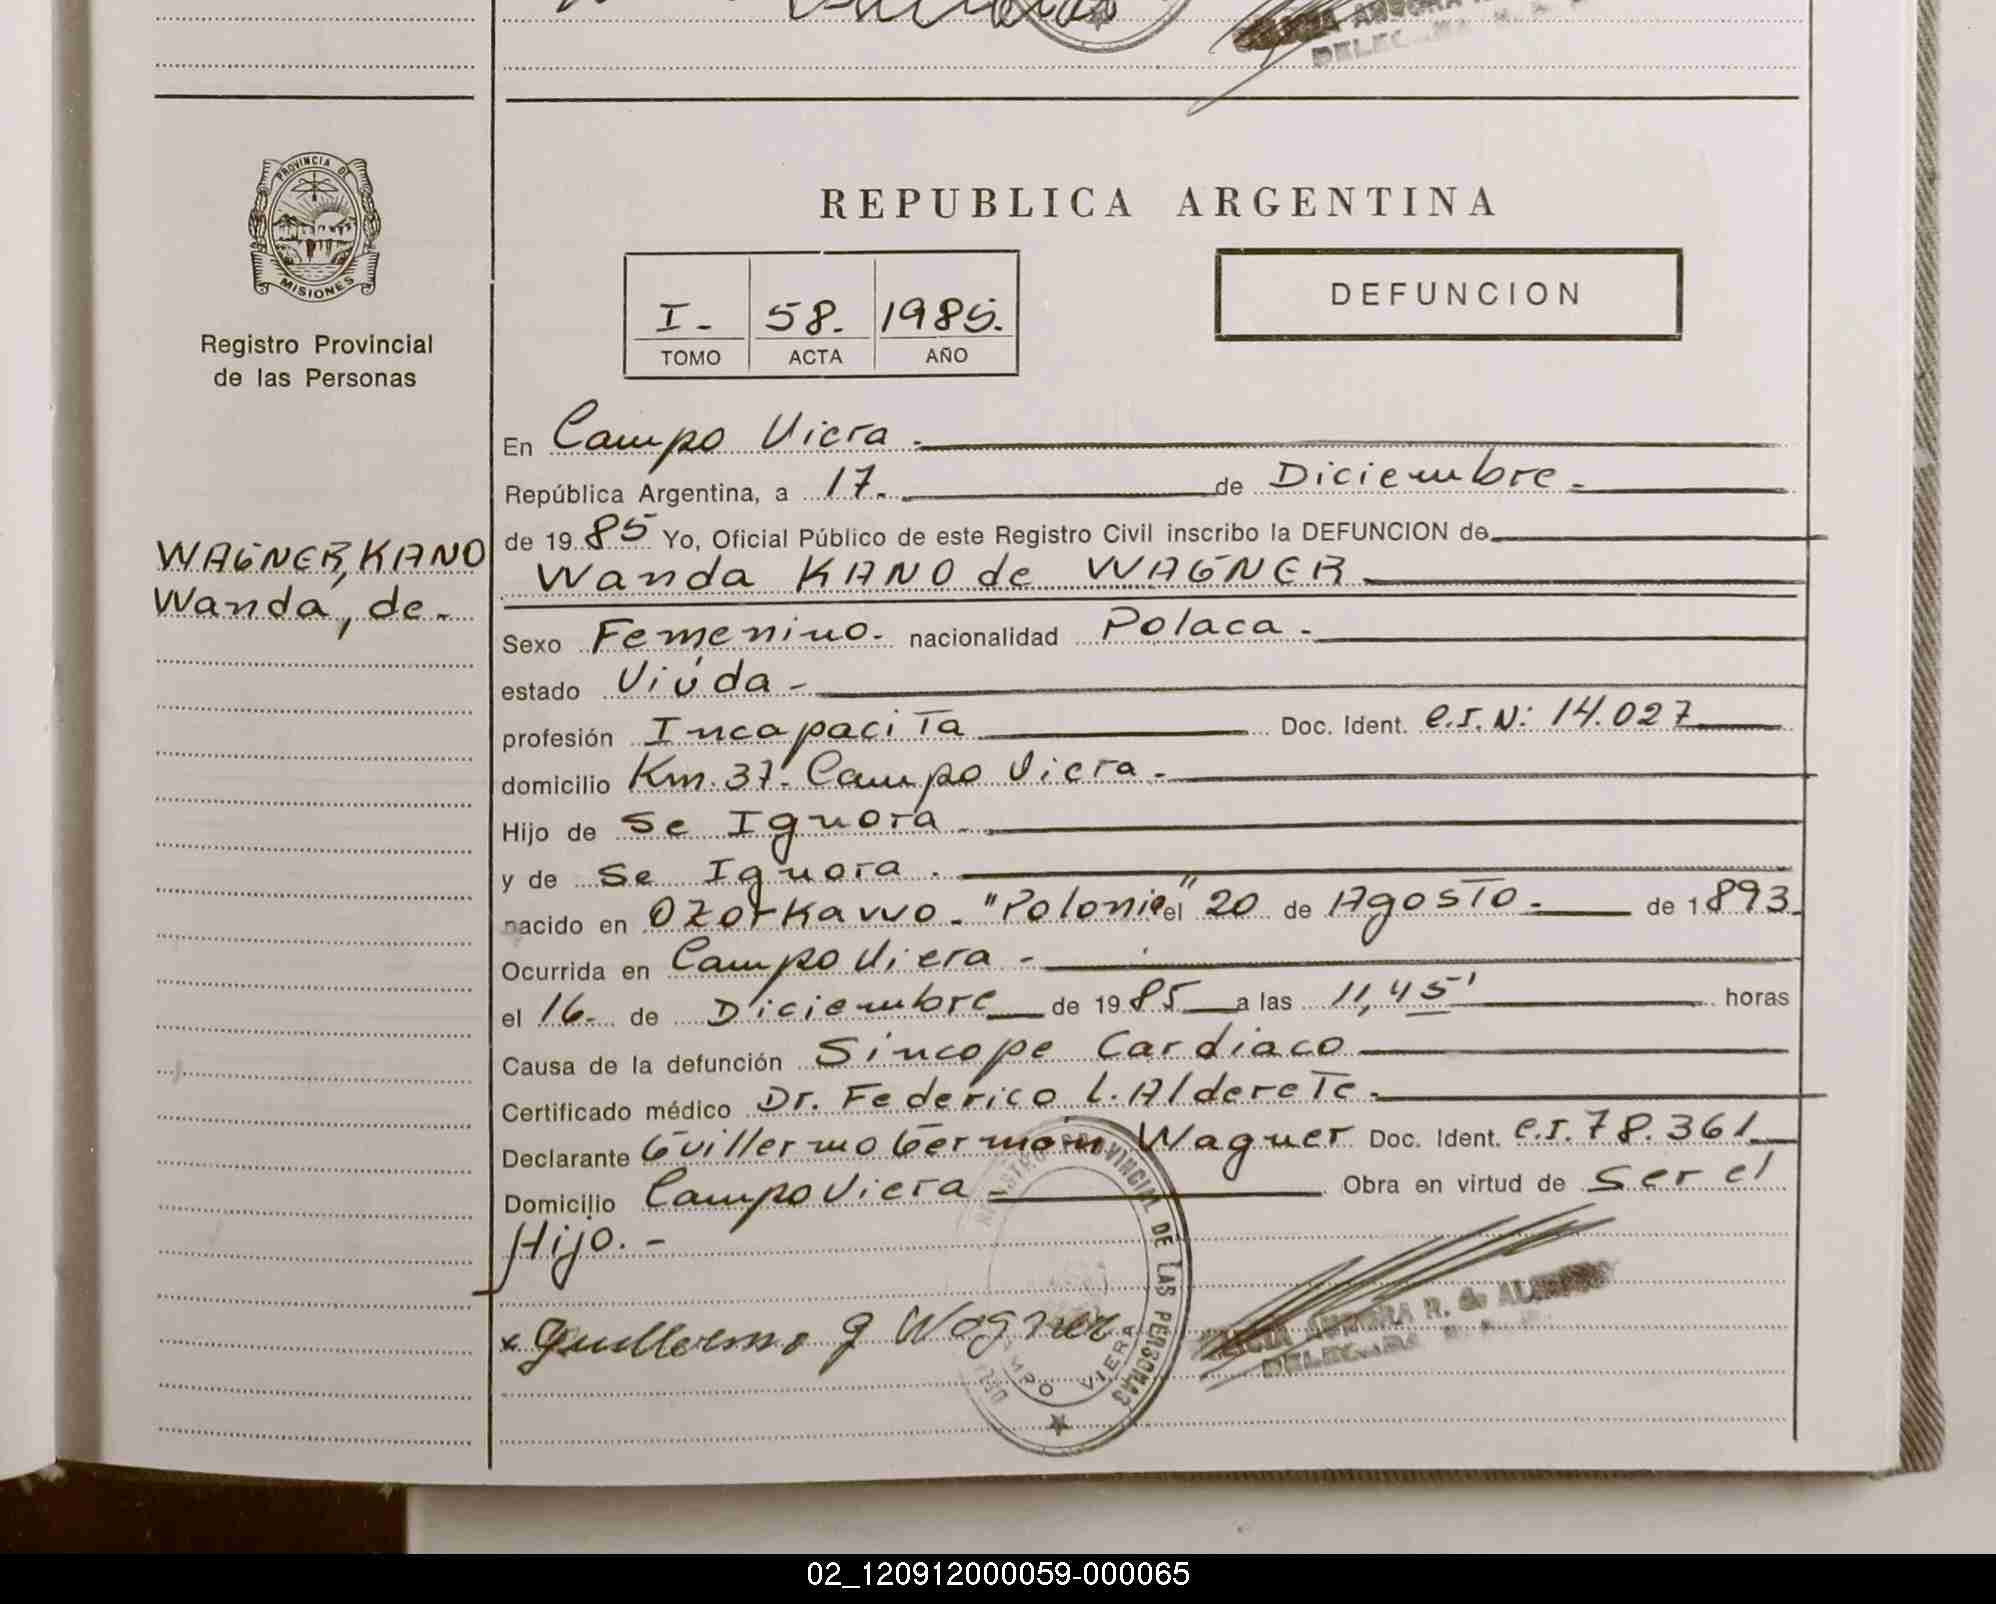 PROVINCIA DE
MISIONES
Registro Provincial
de las Personas
WAGNER, KANO
Wanda, de-
REPUBLICA ARGENTINA
I- 58. 1985.
TOMO ACTA AÑO
DEFUNCION
En Campo Viera.
República Argentina, a 17. de Diciembre.-
de 1985 Yo, Oficial Público de este Registro Civil inscribo la DEFUNCION de
Wanda KANO de WAGNER
Sexo Femenino.- nacionalidad Polaca.-
estado Viúda-
profesión Incapacita Doc. Ident. C.I. N: 14.027
domicilio Km. 37- Campo Viera.-
Hijo de Se Ignora
y de Se Ignora.
nacido en Ozorkawo- "Polonia" el 20 de Agosto.- de 1893
Ocurrida en Campo Viera-
el 16- de Diciembre de 1985 a las 11,45' horas
Causa de la defunción Sincope Cardiaco
Certificado médico Dr. Federico L. Alderete.-
Declarante Guillermo Germán Wagner Doc. Ident. C.I. 78.361
Domicilio Campo Viera Obra en virtud de Ser el
Hijo.-
x Guillermo g Wagner
REGISTRO PROVINCIAL DE LAS PERSONAS
CAMPO VIERA
02_120912000059-000065